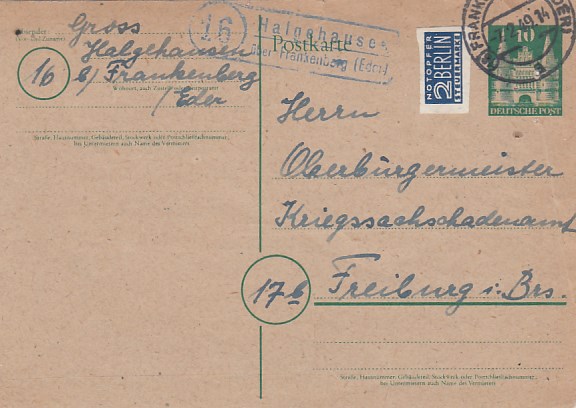 Absender:
Gross
Halgehausen
16 b/ Frankenberg
/Eder
Wohnort, auch Zustell- oder Leitpostamt
Straße, Hausnummer, Gebäudeteil, Stockwerk oder Postschließfachnummer,
bei Untermietern auch Name des Vermieters
16
Halgehausen
über Frankenberg (Eder)
Postkarte
NOTOPFER
2 BERLIN
STEUERMARKE
(16) FRANKENBERG (EDER)
-7.2.49.14
a
10
DEUTSCHE POST
Herrn
Oberbürgermeister
Kriegssachschadenamt
17b
Freiburg i. Brs.
Straße, Hausnummer, Gebäudeteil, Stockwerk oder Postschließfachnummer,
bei Untermietern auch Name des Vermieters